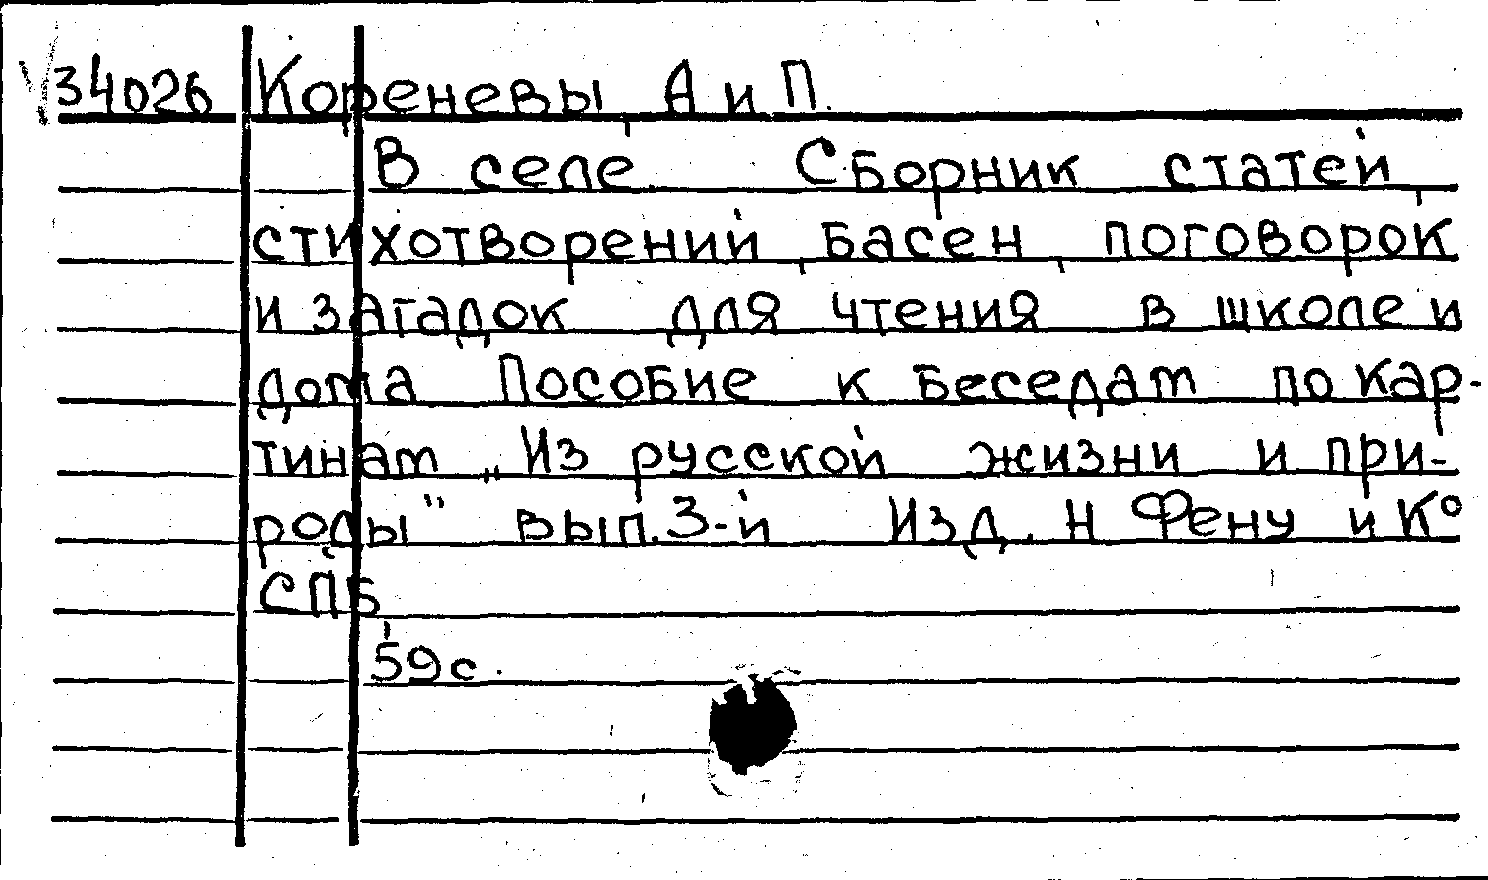 34026 Кореневы, А и П.
В селе. Сборник статей,
стихотворений, басен, поговорок
и загадок для чтения в школе и
дома Пособие к беседам по кар-
тинам „Из русской жизни и при-
роды" вып. 3-й Изд. Н Фену и К°
СПБ,
59с.